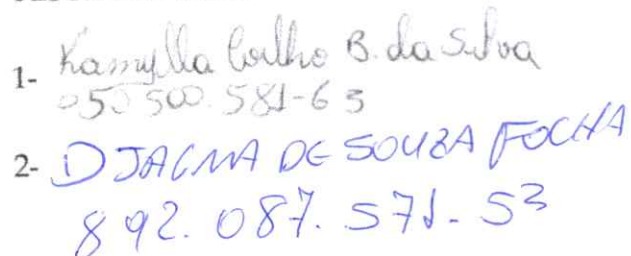 1- Kamylla Coelho B. da Silva
050 500.581-63
2- DJACMA DE SOUZA FOCHA
892.087.571-53